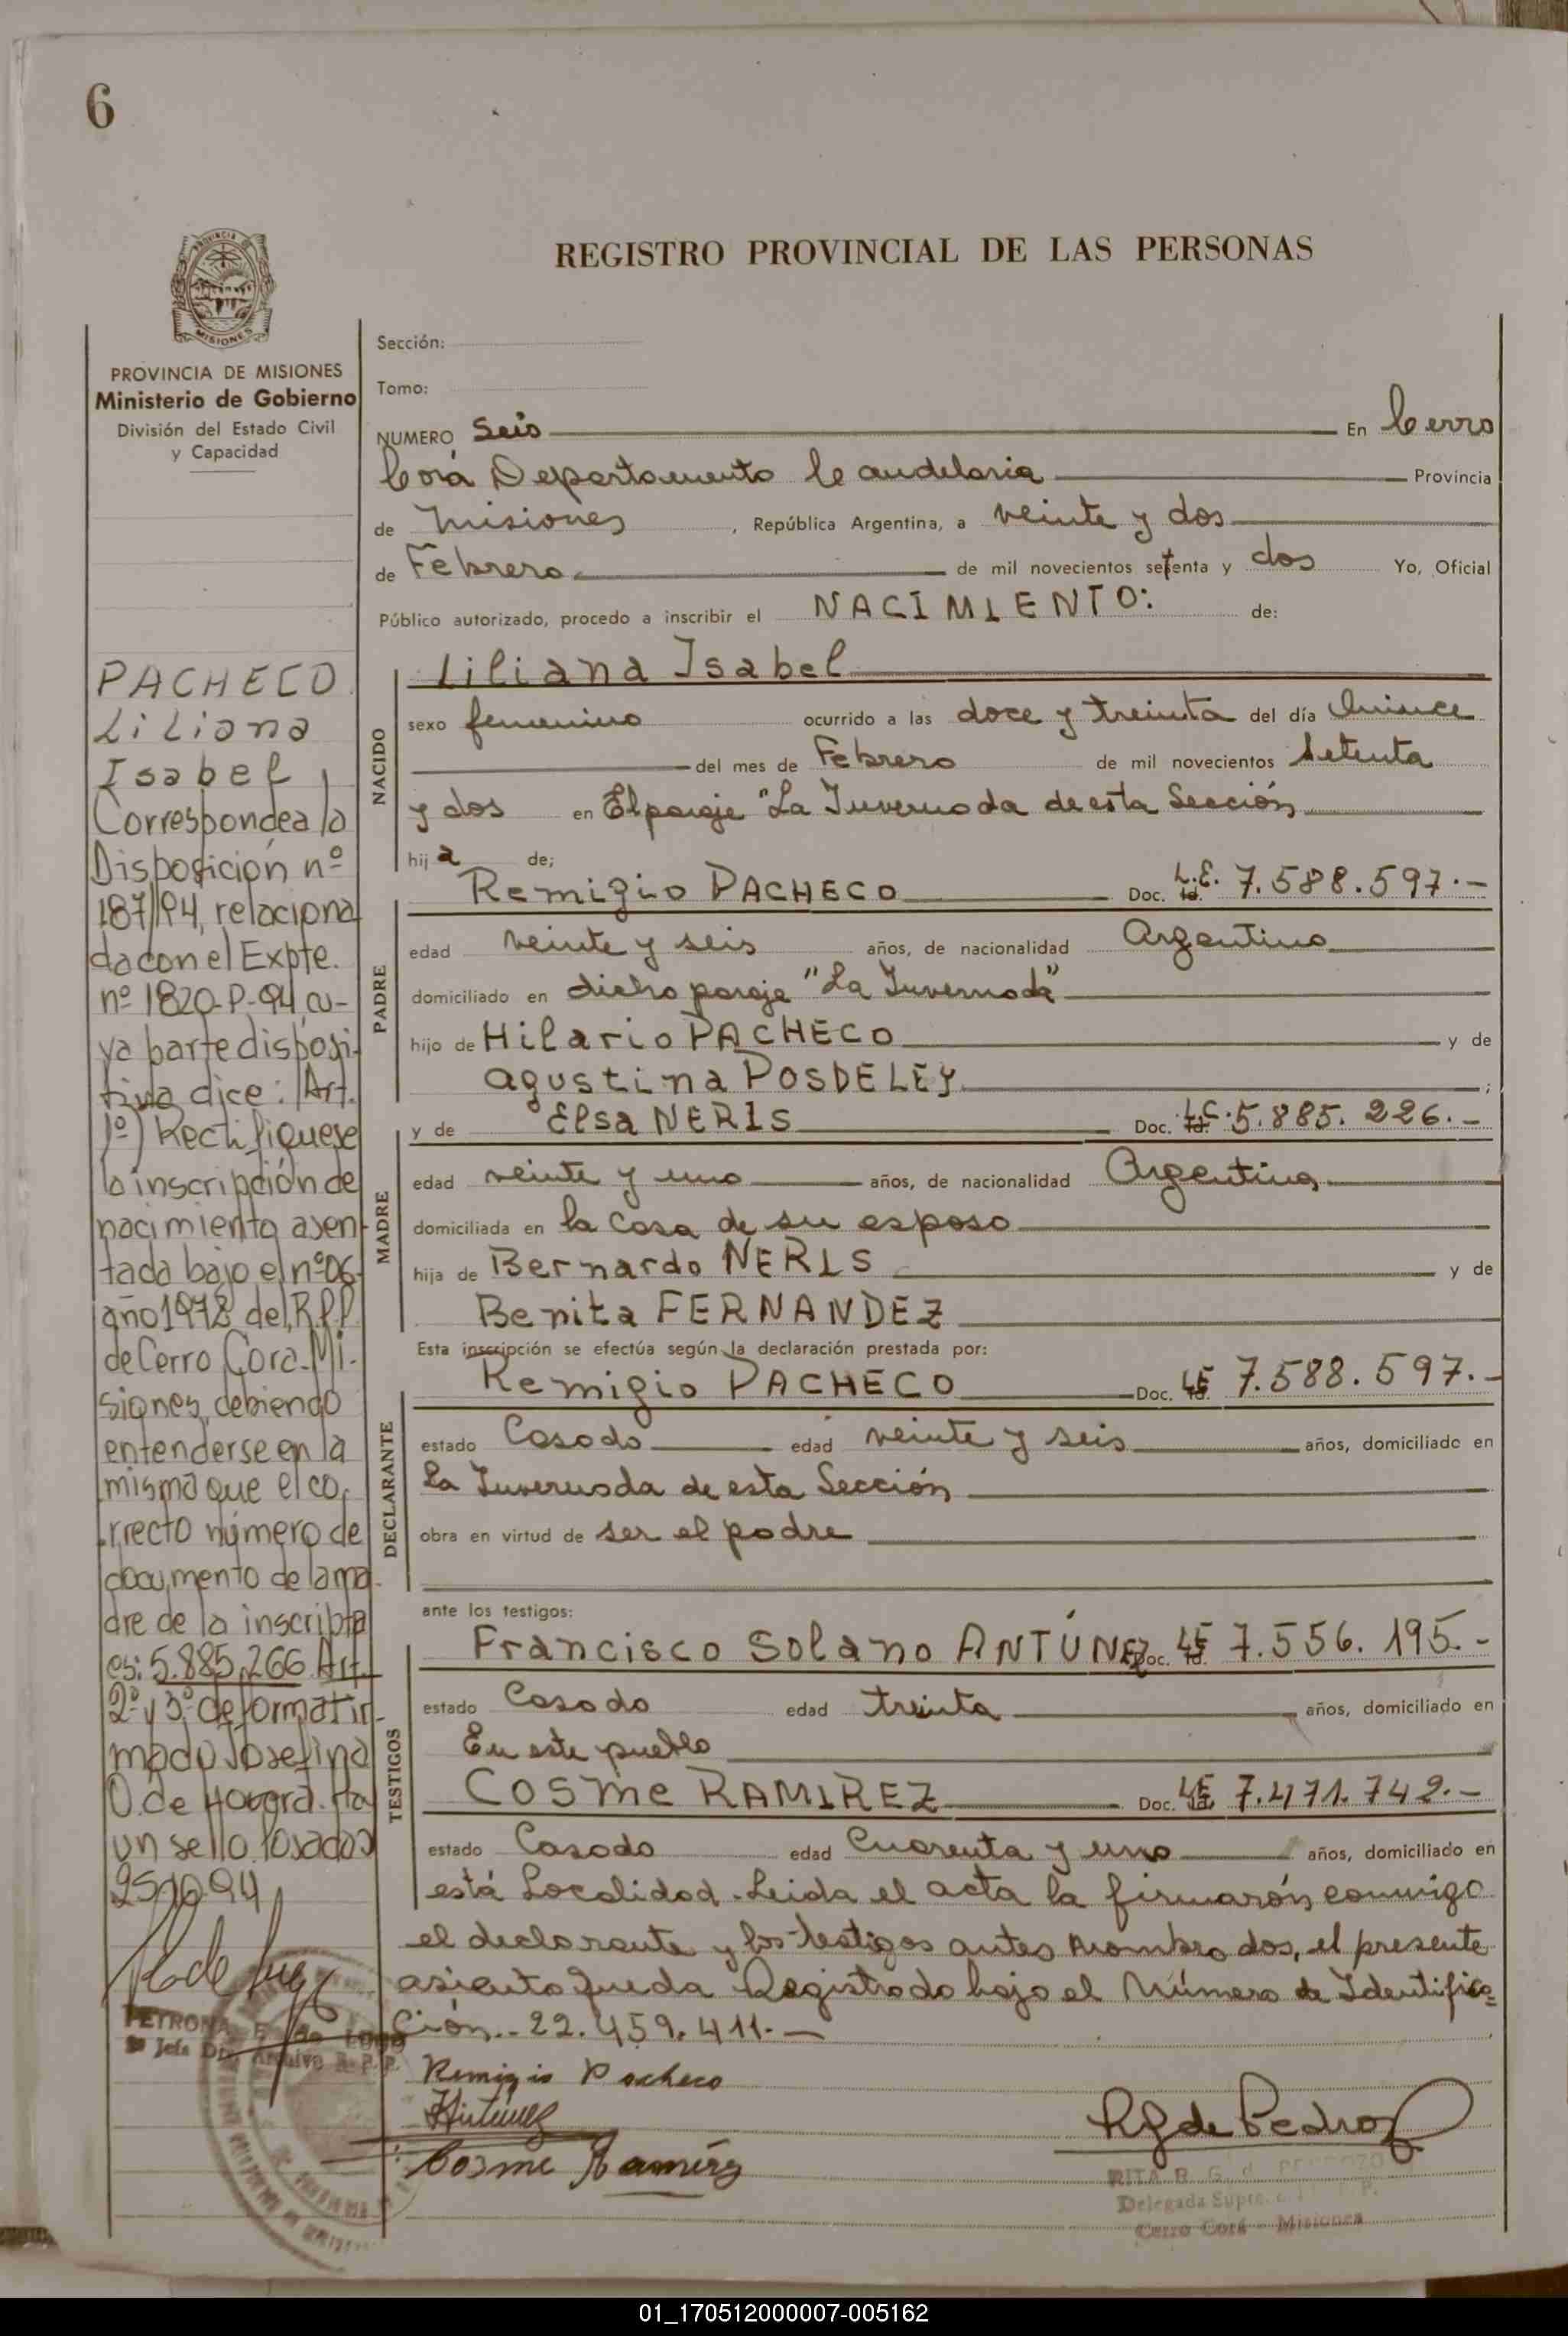 6
REGISTRO PROVINCIAL DE LAS PERSONAS
PROVINCIA
MISIONES
PROVINCIA DE MISIONES
Ministerio de Gobierno
División del Estado Civil
y Capacidad
PACHECO
Liliana
Isabel
Corresponde a la
Disposición nº
187/94, relaciona
da con el Expte.
nº 1820-P-94, cu-
ya parte disposi-
tiva dice: Art.
1º) Rectifiquese
la inscripción de
nacimiento asen-
tada bajo el nº 06
año 1972 del R.P.P.
de Cerro Cora-Mi-
siones, debiendo
entenderse en la
misma que el co-
rrecto número de
documento de la ma-
dre de la inscripta
es: 5.885.266 Art.
2º y 3º de forma fir-
mado Josefina
O. de Hay
un sello Posadas
25
PETRONA E. de
Jefe Archivo R. P. P.
Sección:
Tomo:
NUMERO Seis En Cerro
Corá Departamento Candelaria Provincia
de Misiones, República Argentina, a veinte y dos
de Febrero de mil novecientos setenta y dos Yo, Oficial
Público autorizado, procedo a inscribir el NACIMIENTO: de:
NACIDO
Liliana Isabel
sexo femenino ocurrido a las doce y treinta del día Quince
del mes de Febrero de mil novecientos Setenta
y dos en El paraje "La Invernada de esta Sección
hija de;
PADRE
Remigio PACHECO Doc. L.E. 7.588.597.-
edad veinte y seis años, de nacionalidad Argentino
domiciliado en dicho paraje "La Invernada"
hijo de Hilario PACHECO y de
Agustina POSDELEY ;
MADRE
y de Elsa NERIS Doc. L.C. 5.885.226.-
edad veinte y uno años, de nacionalidad Argentina
domiciliada en la Casa de su esposo
hija de Bernardo NERIS y de
Benita FERNANDEZ
Esta inscripción se efectúa según la declaración prestada por:
DECLARANTE
Remigio PACHECO Doc. LE 7.588.597.-
estado Casado edad veinte y seis años, domiciliado en
La Invernada de esta Sección
obra en virtud de ser el padre
ante los testigos:
TESTIGOS
Francisco Solano ANTÚNEZ Doc. LE 7.556.195.-
estado Casado edad treinta años, domiciliado en
En este pueblo
COSME RAMIREZ Doc. LE 7.471.742.-
estado Casado edad Cuarenta y uno años, domiciliado en
está Localidad. Leida el acta la firmarón conmigo
el declarante y los testigos antes nombrados, el presente
asiento queda Registrado bajo el Número de Identifica=
ción.- 22.459.411.-
Remigio Pacheco
Antúnez
Cosme Ramírez
RG de Pedrozo
RITA R. G. d. PEDROZO
Delegada Supte. P.
Cerro Corá - Misiones
01_170512000007-005162